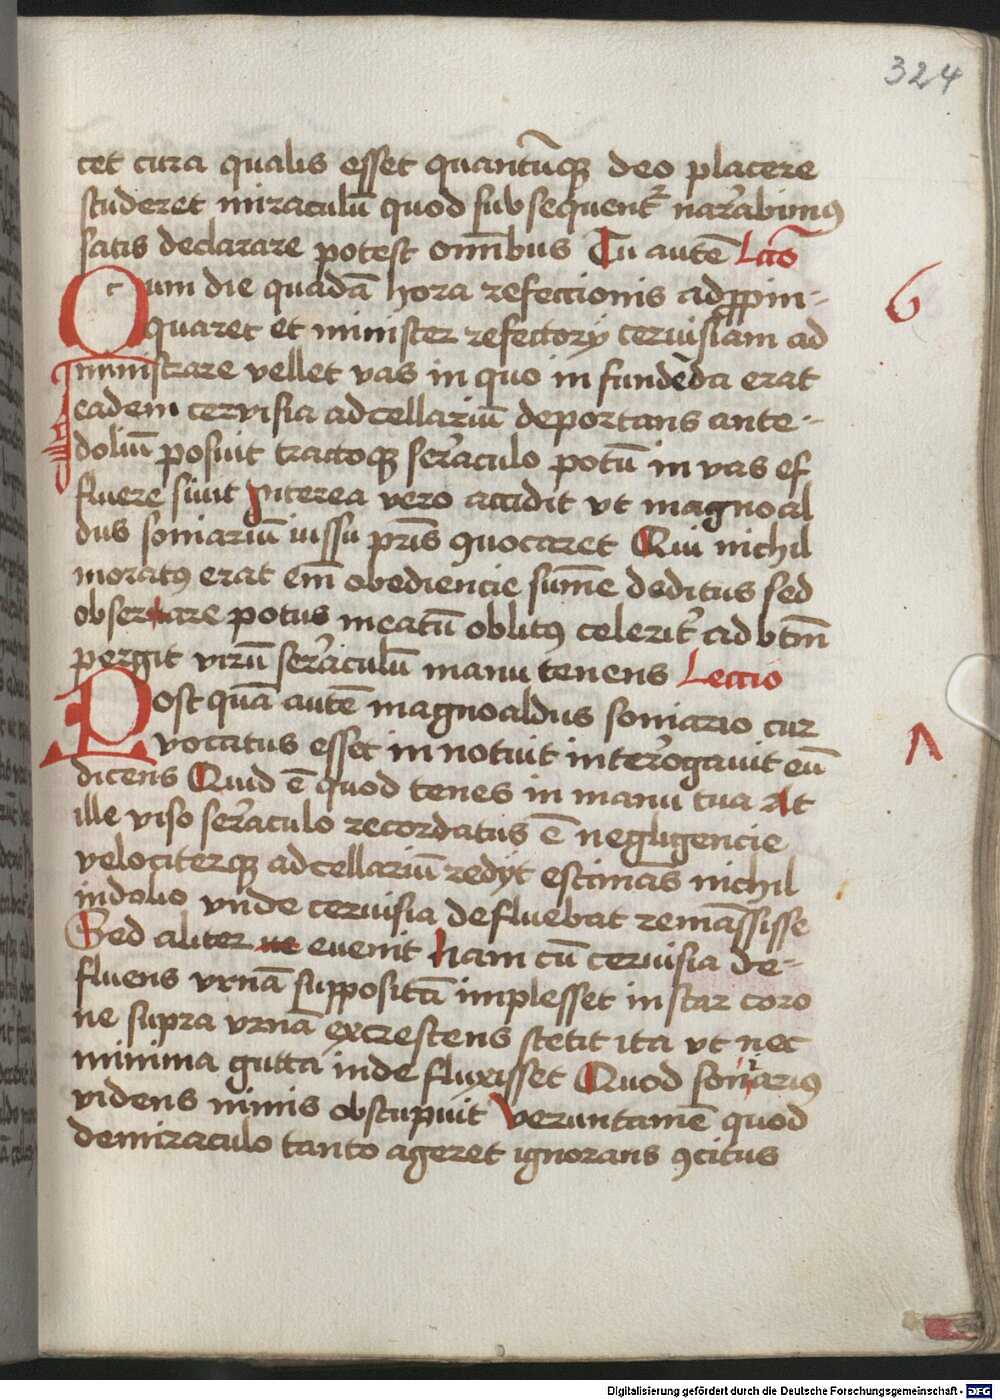 324
cet cura qualis esset quantūqꝫ deo placere
studeret miraculū quod subsequent᷑ narrabimus
satis declarare potest omībus Tu autē Lc̄io
Cum die quadā hora refectionis adppin-
6
quaret et minister refectorÿ ceruisiam ad
ministrare vellet vas in quo infundēda erat
eadem ceruisia ad cellariū deportans ante-
doliū posuit tractoqꝫ seraculo potū in vas ef
fluere siuit Interea vero accidit vt magnoal
dus soniariū iussu pr̄is ꝯuocaret Qui nichil
moratꝰ erat em̄ obediencie sum̄e deditus sed
obseruare potus meatū oblitꝰ celerit᷑ ad vtm̄
pergit virū seraculū manu tenens Lectio
Post quā autē magnoaldus soniario cur
ꝟocatus esset innotuit interrogauit eū
ʌ
dicens Quid ē quod tenes in manu tua At
ille viso seraculo recordatus ē negligencie
velociterqꝫ ad cellariū redÿt estimās nichil
in dolio vnde ceruisia defluebat remāsisse
Sed aliter euenit Nam cū ceruisia de-
fluens vrnā suppositā implesset instar coro
ne supra vrnā excrescens stetit ita vt nec
minima gutta inde fluxisset Quod soniarius
videns nimis obstupuit Veruntamē quod
de miraculo tanto ageret ignorans ꝯcitus
Digitalisierung gefördert durch die Deutsche Forschungsgemeinschaft - DFG